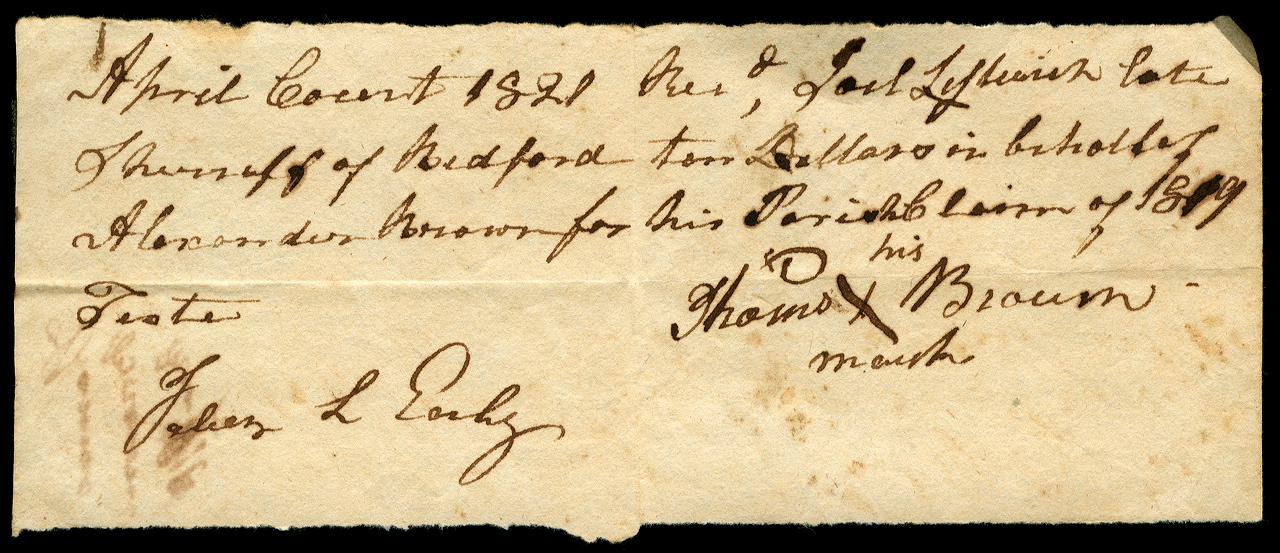 April Court 1821 Recd, Joel Leftwich late
Sherriff of Bedford ten Dollars in behalf of
Alexander Brown for his Parish Claim of 1819
his
Teste Thomas X Brown
mark
Jabez L Early